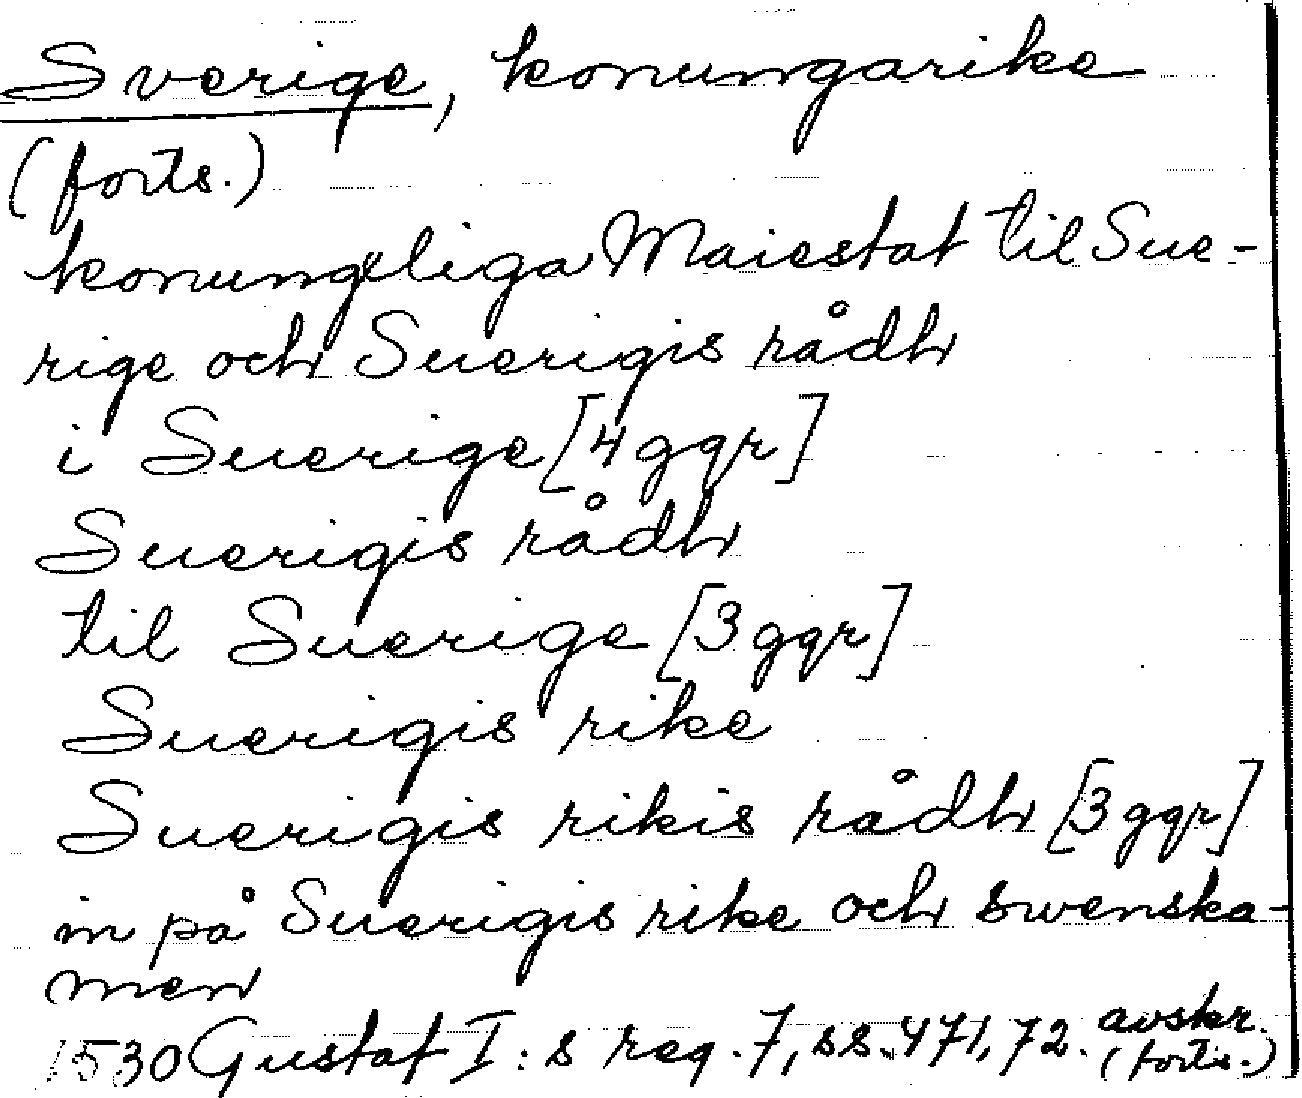 Sverige, konungarike
(forts.)
konungliga Maiestat til Sue-
rige och Suerigis rådh
i Suerige [4 ggr]
Suerigis rådh
til Suerige [3 ggr]
Suerigis rike
Suerigis rikis rådh [3 ggr]
in på Suerigis rike och swenska-
men
1530 Gustaf I:s reg. 7, ss. 471, 72. avskr.
(forts.)